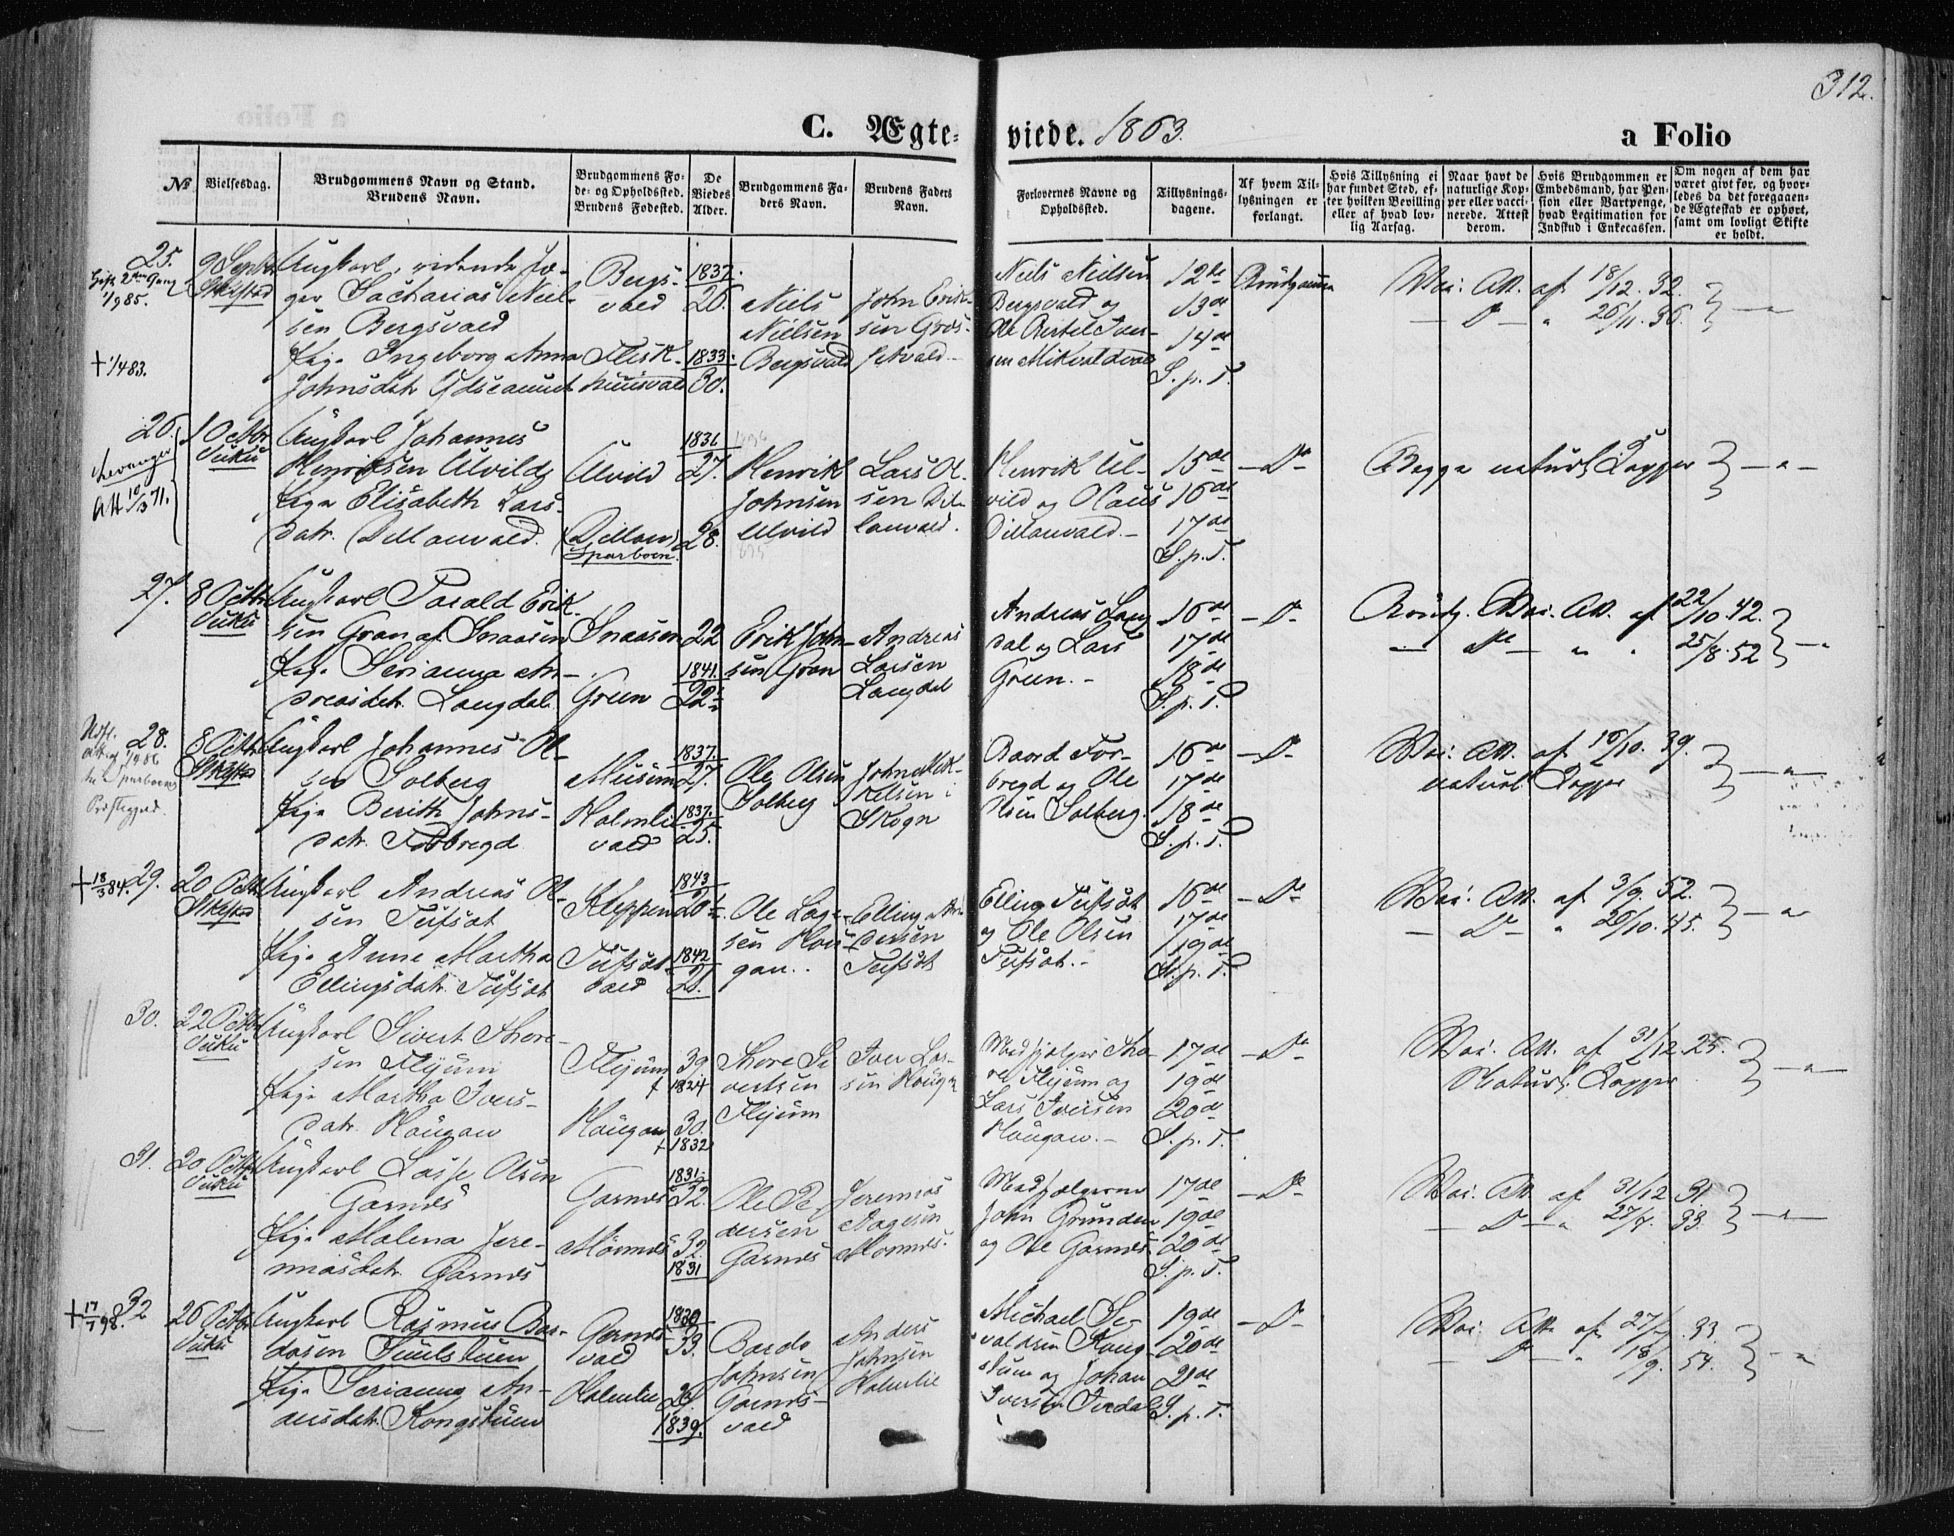 312.
C. Ægte-
viede. 1863.
a Folio
№
Vielsesdag.
Brudgommens Navn og Stand.
Brudens Navn.
Brudgommens Fø-
de- og Opholdssted.
Brudens Fødested.
De
Viedes
Alder.
Brudgommens Fa-
ders Navn.
Brudens Faders
Navn.
Forlovernes Navne og
Opholdssted.
Tillysnings-
dagene.
Af hvem Til-
lysningen er
forlangt.
Hvis Tillysning ei
har fundet Sted, ef-
ter hvilken Bevilling
eller af hvad lov-
lig Aarsag.
Naar havt de
naturlige Kop-
per eller vacci-
nerede. Attest
derom.
Hvis Brudgommen er
Embedsmand, har Pen-
sion eller Vartpenge,
hvad Legitimation for
Indskud i Enkecassen.
Om nogen af dem har
været gift før, og hvor-
ledes da det foregaaen-
de Ægteskab er ophørt,
samt om lovligt Skifte
er holdt.
25.
Gift 2den Gang
1/9 85.
† 1/4 83.
9 Septbr
Stiklestad
Ungkarl, ridende Jæ-
ger Sacharias Niel-
sen Bergsvald
Pige Ingeborg Anna
Johnsdatr
Bergs-
vald
1837.
26.
1833.
30.
Niels
Nielsen
Bergsvald
John Erik-
sen
Niels Nielsen
Bergsvald og
Ole Bertel Iver-
sen
12te
13de
14de
S. p. T.
Brudgommen
Vac. Att. af 18/12. 32.
— D — " 26/11. 36.
26.
Levanger
Att 10/3 71.
1 Octbr
Vuku
Ungkarl Johannes
Henriksen Ulvild
Pige Elisabeth Lars-
datr. Dillanvald.
Ulvild
Dillan
Sparboen.
1836
27.
28.
Henrik
Johnsen
Ulvild
Lars Ol-
sen Dil-
lanvald.
Henrik Ul-
vild og Claus
Dillanvald.
15de
16de
17de
S. p. T.
— Do
Begge naturl. Kopper
27.
8 Octbr
Vuku
Ungkarl Parald Erik-
sen Gran af Snaasen
Pige Serianna An-
dreasdatr. Langdal.
Snaasen
Green
22
1841.
22
Erik John-
sen Gran
Andreas
Larsen
Langdal
Andreas Lang-
dal og Lars
Green.
16de
17de
18de
S. p. T.
— Do
Brudg. Vac. Att. af 22/10. 42.
— " " 25/8. 52
28.
8 Octbr
Stiklestad
Ungkarl Johannes Ol-
sen Solberg
Pige Berith Johns-
datr. Forbregd
Holmli-
vald
1837.
27.
1837.
25.
Ole Olsen
Solberg
John Mik-
kelsen i
Skogn
Baard For-
bregd og Ole
Olsen Solberg.
16de
17de
18de
S. p. T.
— Do
Vac. Att. af 16/10. 39.
naturl. Kopper
† 18/3 84.
29.
20 Octbr
Stiklestad
Ungkarl Andreas Ol-
sen Tufsæt
Pige Anne Martha
Ellingsdatr. Tufsæt
Kleppen
Tufsæt-
vald
1843
20
1842
21.
Ole Lage-
sen Hou-
gan.
Elling An-
dersen
Tufsæt
Elling Tufsæt
og Ole Olsen
Tufsæt.
16de
17de
19de
S. p. T.
— Do
Vac. Att. af 3/9. 52.
— D — " 26/10. 45.
30.
22 Octbr
Vuku
Ungkarl Sivert Thore-
sen Flyum
Pige Martha Ivers-
datr. Hougan
Flyum
Hougan
39
1824
30.
1832
Thore Si-
vertsen
Flyum
Iver Lar-
sen Hougan
Medfølger Tho-
re Flyum og
Lars Iversen
Hougan.
17de
19de
20de
S. p. T.
— Do
Vac. Att. af 31/12. 25.
Naturl. Kopper
31.
20 Octbr
Vuku
Ungkarl Lasse Olsen
Garnæs
Pige Malena Jere-
miasdatr. Garnæs
Garnæs
1831
32.
32
1831
Ole Pe-
dersen
Garnæs
Jeremias
Aagesen
Medfølgerne
John Grunden
og Ole Garnæs
17de
19de
20de
S. p. T.
— Do
Vac. Att. af 31/12. 31.
— D — " 27/7. 33.
† 17/7 98.
32
26 Octbr
Vuku
Ungkarl Rasmus Bar-
dosen
Pige Serianna An-
dersdatr. Kongstuen
Garnæs-
vald
Holmlie
1830
33.
24.
1839.
Bardo
Johnsen
Garnæs-
vald
Anders
Johnsen
Holmlie
Michael Se-
valdsen Kong-
stuen og Johan
Iversen
19de
20de
21de
S. p. T.
— Do
Vac. Att. af 27/7. 33.
— D — " 18/9. 54.